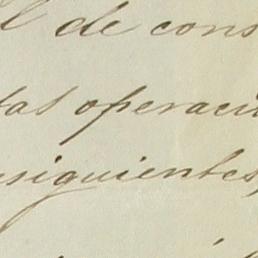 l de cons
tas operaci
nsiguientes,